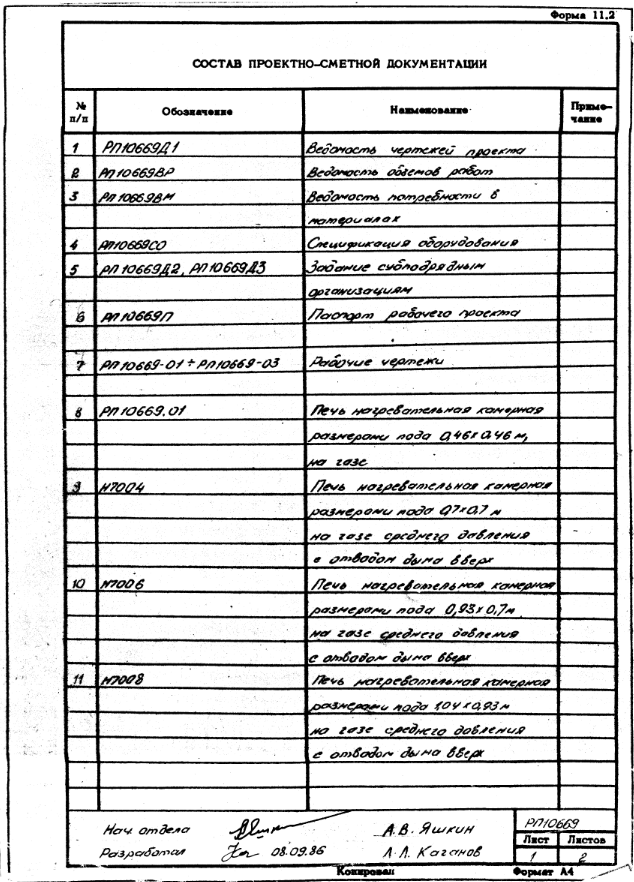 Форма 11.2
СОСТАВ ПРОЕКТНО-СМЕТНОЙ ДОКУМЕНТАЦИИ
№ п/п Обозначение Наименование Приме-чание
1 РП10669Д1 Ведомость чертежей проекта
2 РП10669ВР Ведомость объемов работ
3 РП10669ВМ Ведомость потребности в
материалах
4 РП10669СО Спецификация оборудования
5 РП10669Д2, РП10669Д3 Задание субподрядным
организациям
6 РП10669П Паспорт рабочего проекта
7 РП10669-01÷РП10669-03 Рабочие чертежи
8 РП10669.01 Печь нагревательная камерная
размерами пода 0,46х0,46 м,
на газе
9 Н7004 Печь нагревательная камерная
размерами пода 0,7х0,7 м
на газе среднего давления
с отводом дыма вверх
10 Н7006 Печь нагревательная камерная
размерами пода 0,93х0,7м
на газе среднего давления
с отводом дыма вверх
11 Н7008 Печь нагревательная камерная
размерами пода 1,04х0,93м
на газе среднего давления
с отводом дыма вверх
Нач. отдела А.В. Яшкин РП10669
Лист Листов
Разработал 08.09.86 А.Л. Каганов 1 2
Копировал Формат А4